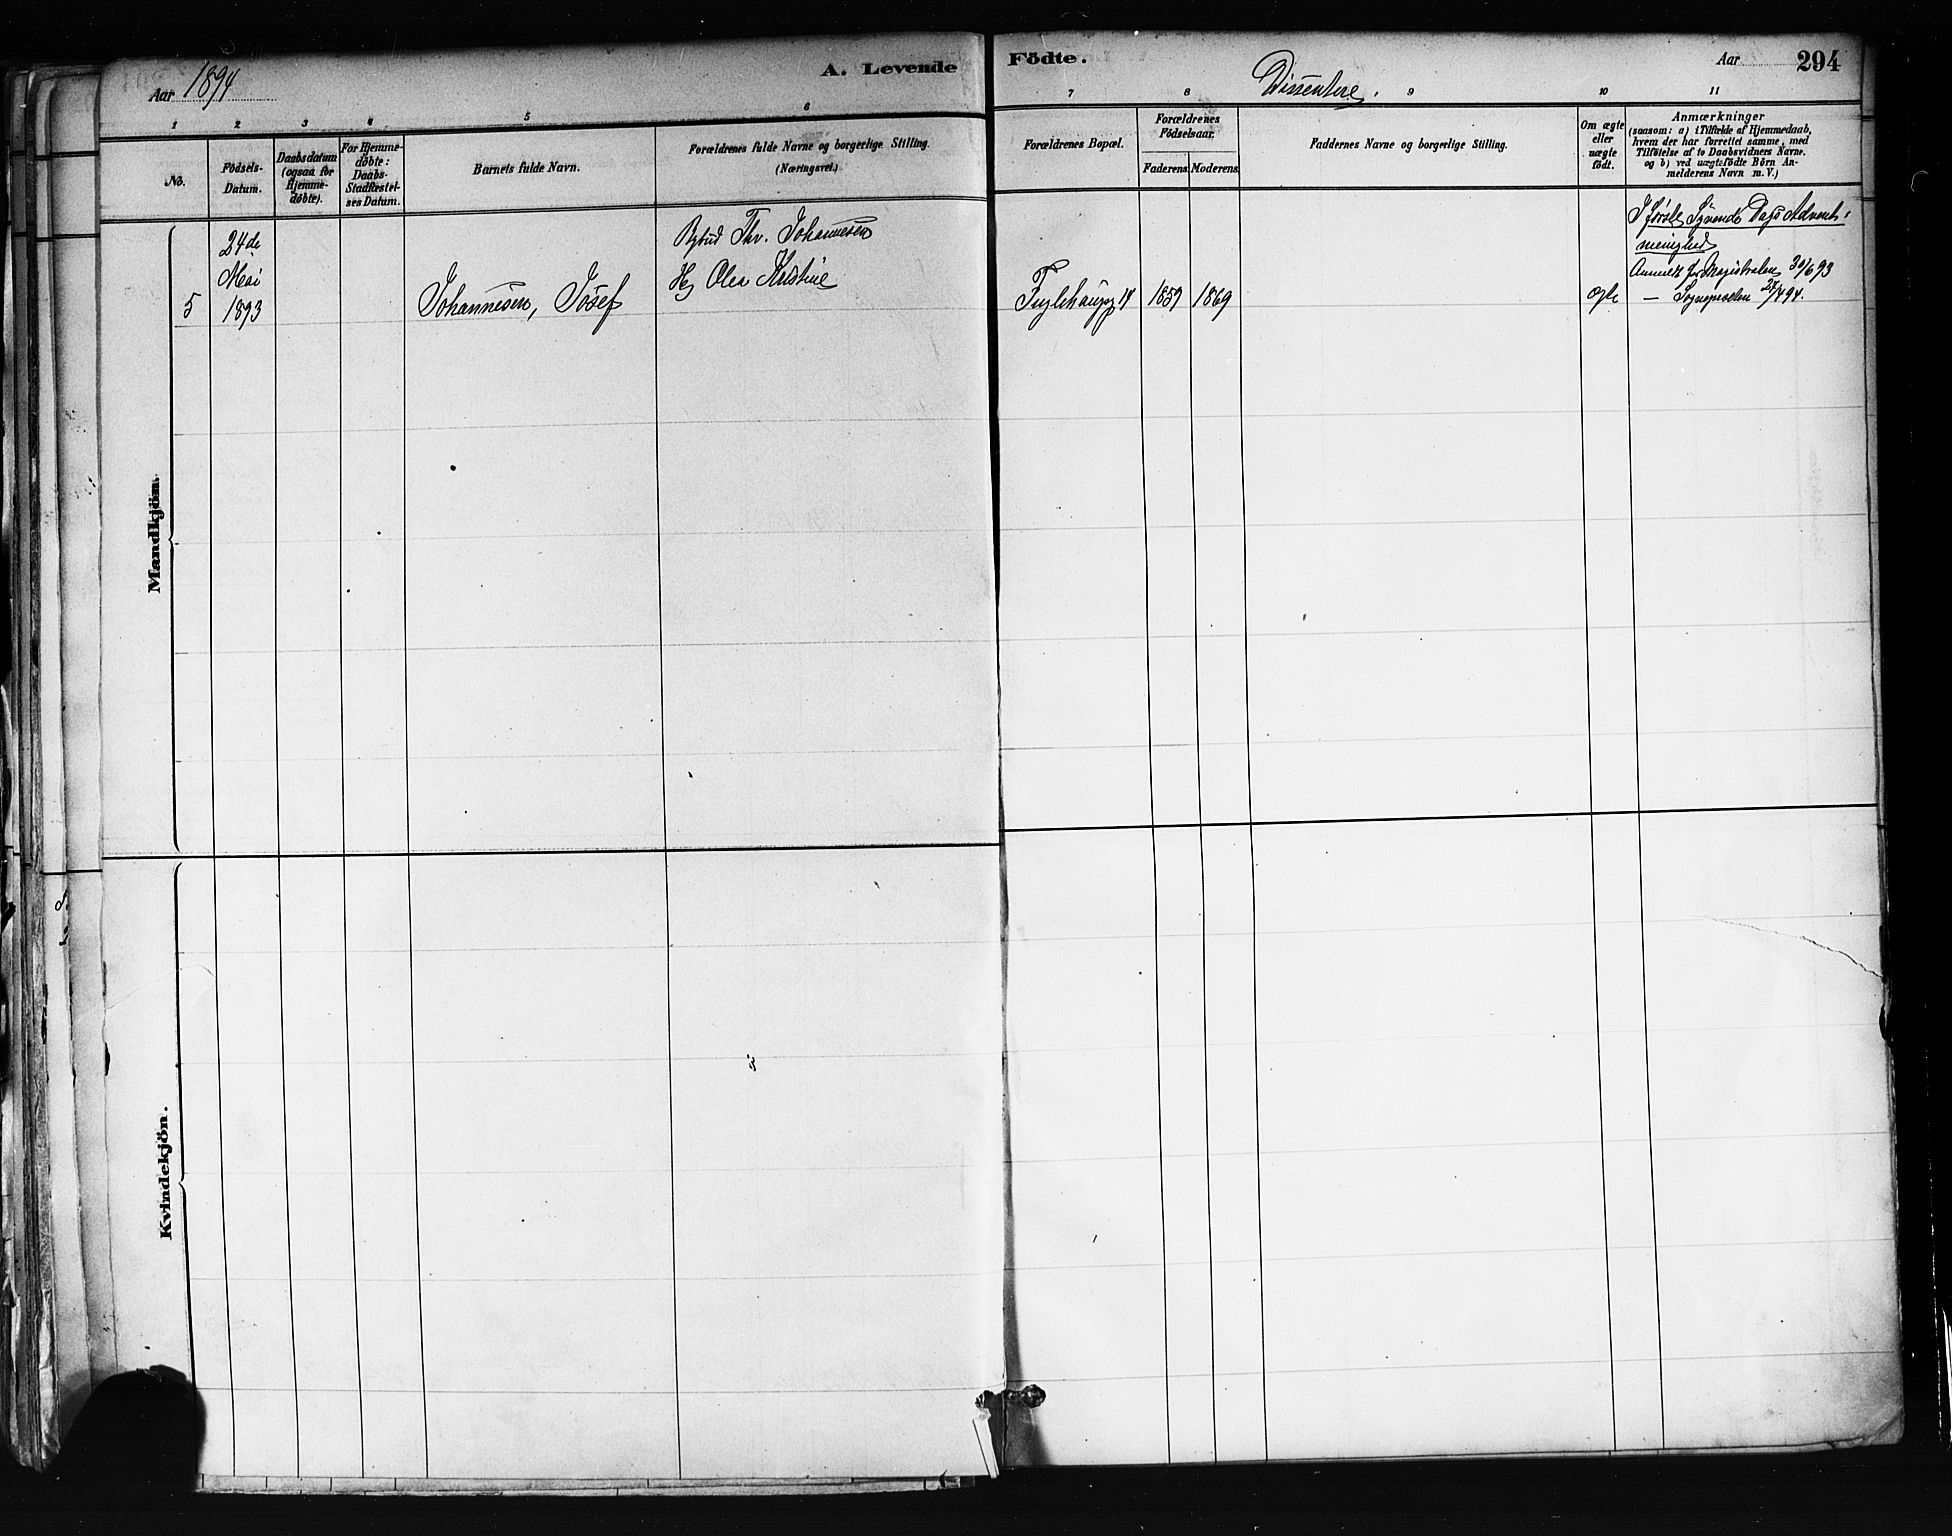 Aar 1894
A. Levende
Födte.
Dissentere.
Aar
294
1 2 3 4 5 6
7 8 9 10 11
No.
Födsels-
Datum.
Daabsdatum
(ogsaa for
Hjemme-
døbte).
For Hjemme-
døbte:
Daabs-
Stadfæstel-
ses Datum.
Barnets fulde Navn.
Forældrenes fulde Navne og borgerlige Stilling.
(Næringsvei.)
Forældrenes Bopæl.
Forældrenes
Födselsaar.
Faderens. Moderens.
Faddernes Navne og borgerlige Stilling.
Om ægte
eller
uægte
født.
Anmærkninger
(saasom: a) i Tilfælde af Hjemmedaab,
hvem der har forrettet samme, med
Tilföielse af to Daabsvidners Navne.
og b) ved uægtefödte Börn An-
melderens Navn m. V.)
Mandkjön.
5
24de
Mai
1893
Johannesen, Josef
Bybud Thv. Johannesen
H. Olea Kristine
Fuglehaugg 14
1859
1869
ægte
I første Syvende Dags Advent-
menighed
Anmeldt for Magistraten 30/6 93
— Sognepresten 27/4 94.
Kvindekjön.